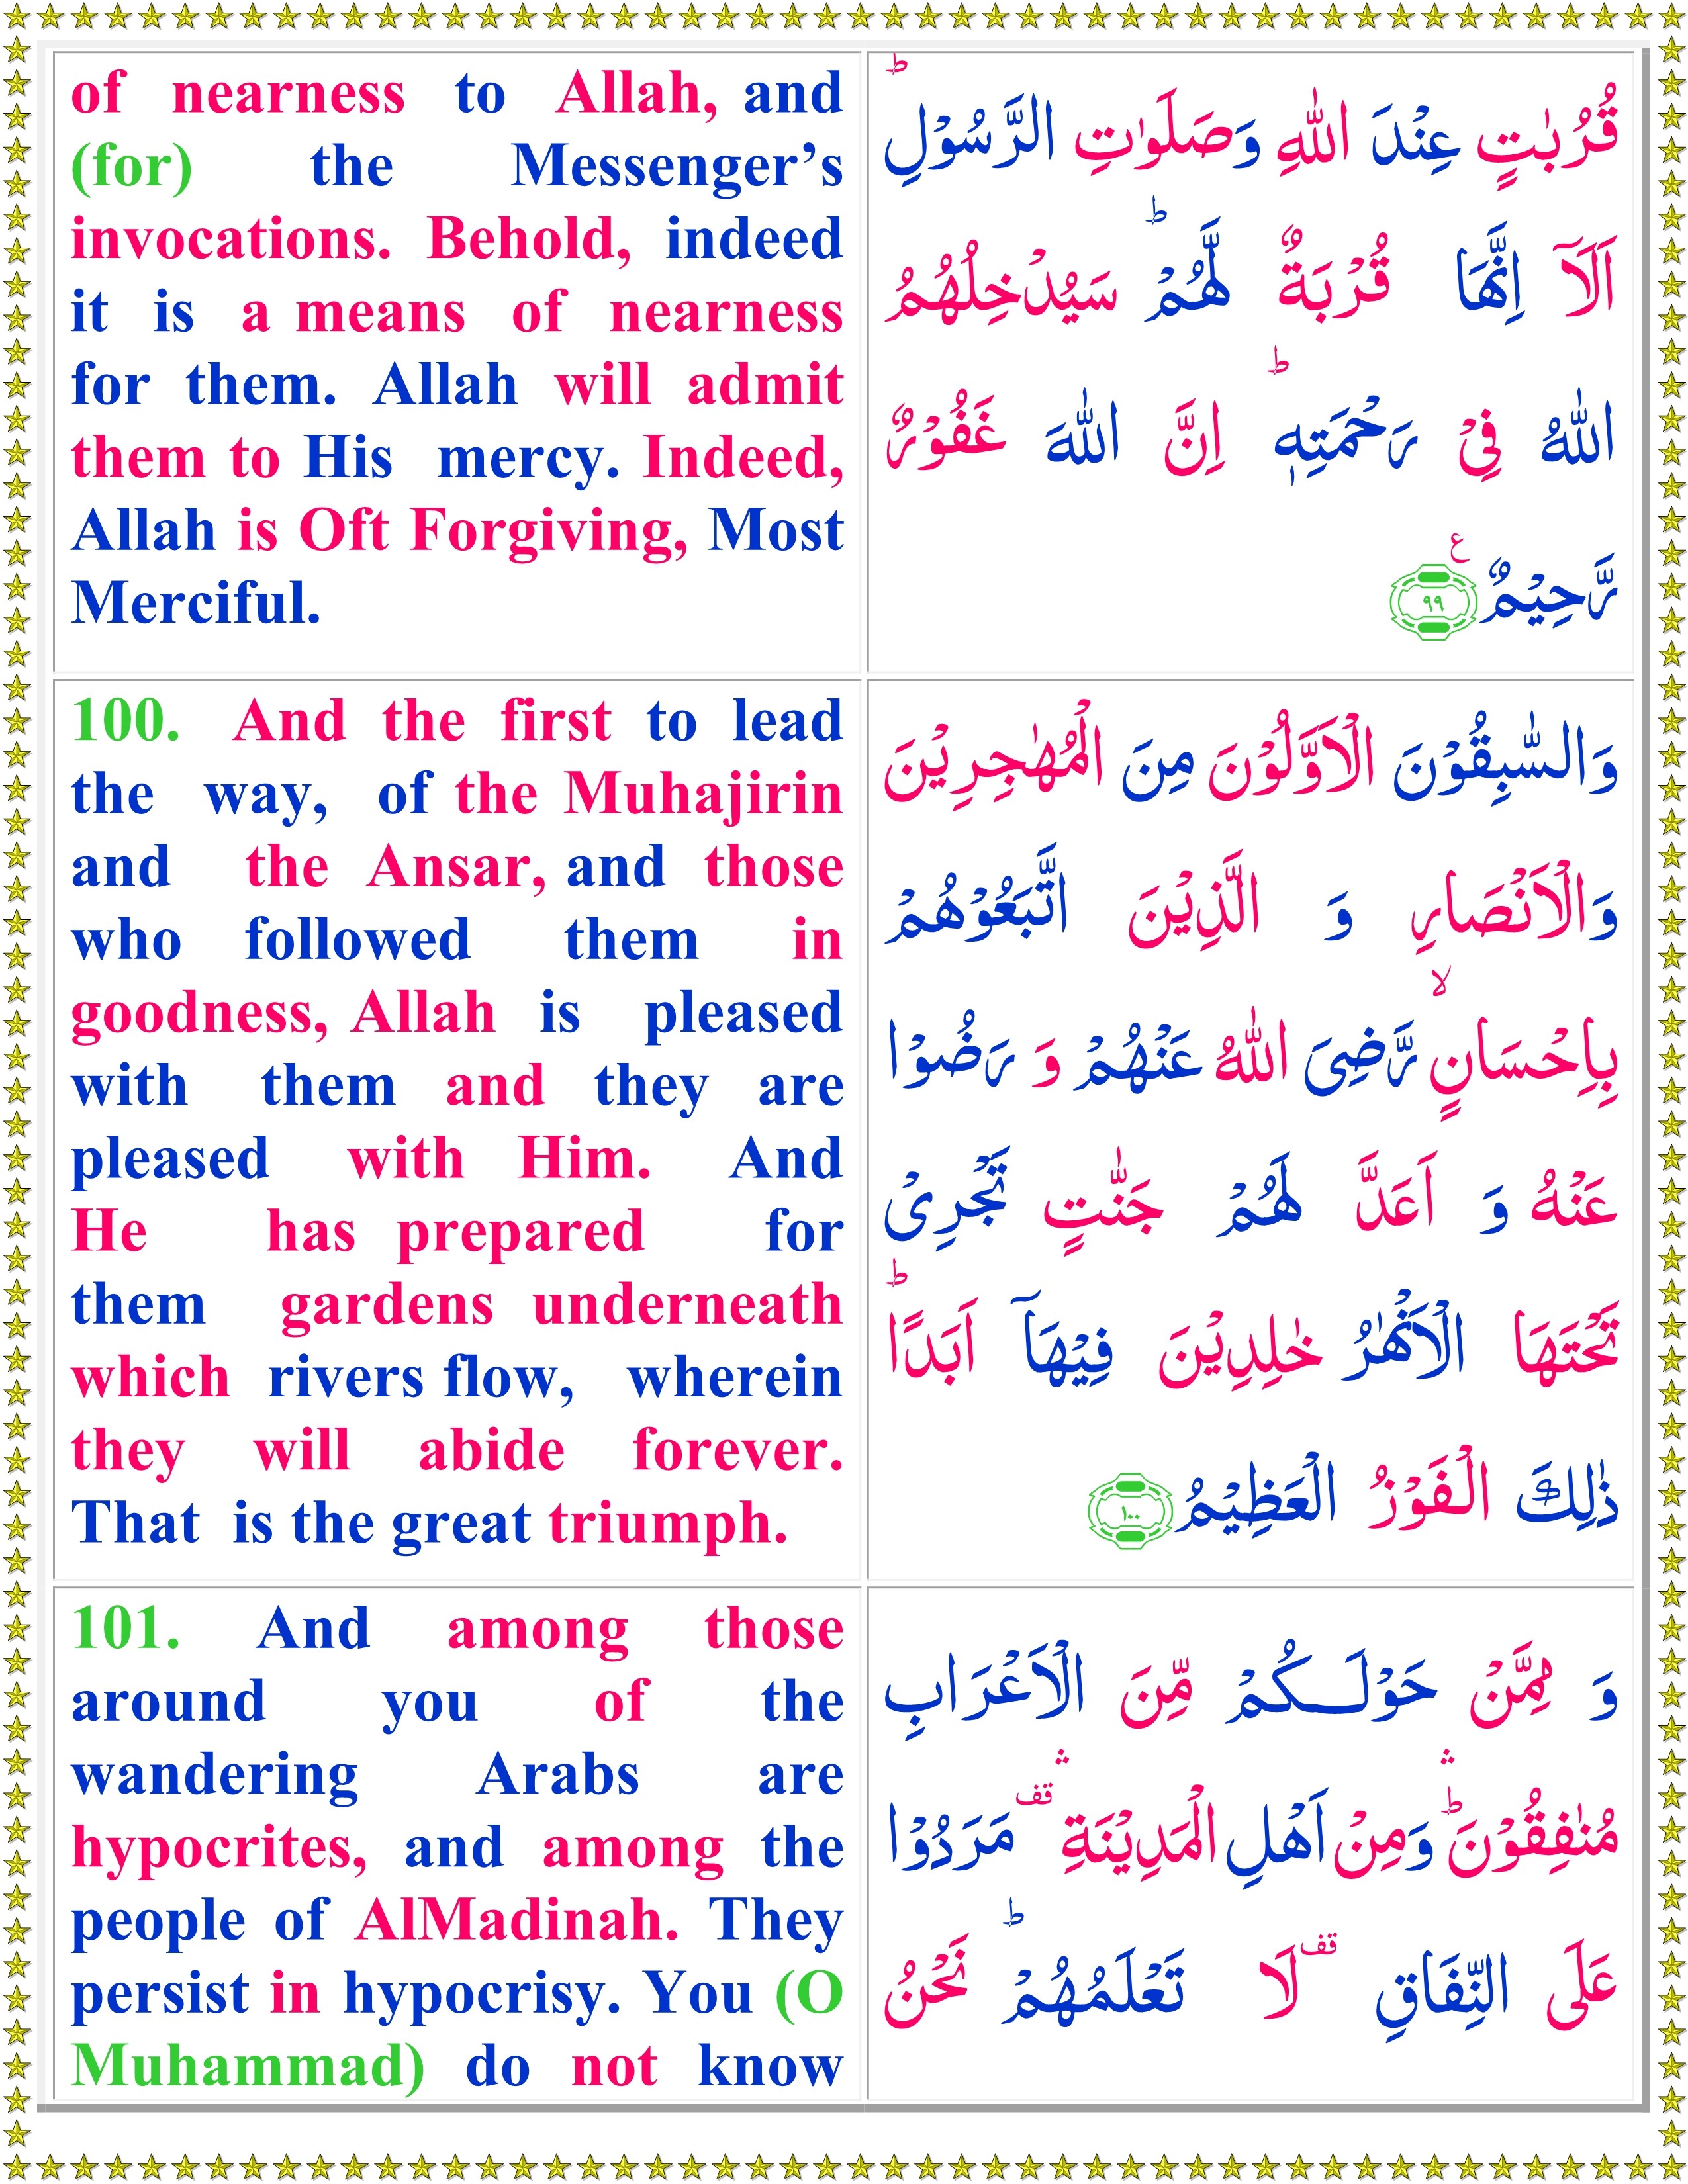 of nearness to Allah, and
(for) the Messenger’s
invocations. Behold, indeed
it is a means of nearness
for them. Allah will admit
them to His mercy. Indeed,
Allah is Oft Forgiving, Most
Merciful.
قُرُبٰتٍ عِنْدَ اللّٰهِ وَصَلَوٰتِ الرَّسُوْلِ ؕ
اَلَاۤ اِنَّهَا قُرْبَةٌ لَّهُمْ ؕ سَيُدْخِلُهُمُ
اللّٰهُ فِىْ رَحْمَتِهٖ ؕ اِنَّ اللّٰهَ غَفُوْرٌ
رَّحِيْمٌ ع ٩٩
100. And the first to lead
the way, of the Muhajirin
and the Ansar, and those
who followed them in
goodness, Allah is pleased
with them and they are
pleased with Him. And
He has prepared for
them gardens underneath
which rivers flow, wherein
they will abide forever.
That is the great triumph.
وَالسّٰبِقُوْنَ الْاَوَّلُوْنَ مِنَ الْمُهٰجِرِيْنَ
وَالْاَنْصَارِ وَ الَّذِيْنَ اتَّبَعُوْهُمْ
بِاِحْسَانٍ ۙ رَّضِىَ اللّٰهُ عَنْهُمْ وَ رَضُوْا
عَنْهُ وَ اَعَدَّ لَهُمْ جَنّٰتٍ تَجْرِىْ
تَحْتَهَا الْاَنْهٰرُ خٰلِدِيْنَ فِيْهَاۤ اَبَدًا ؕ
ذٰلِكَ الْفَوْزُ الْعَظِيْمُ ١٠٠
101. And among those
around you of the
wandering Arabs are
hypocrites, and among the
people of AlMadinah. They
persist in hypocrisy. You (O
Muhammad) do not know
وَ مِمَّنْ حَوْلَــكُمْ مِّنَ الْاَعْرَابِ
مُنٰفِقُوْنَ ؕ ۛ وَمِنْ اَهْلِ الْمَدِيْنَةِ ۛ قف مَرَدُوْا
عَلَى النِّفَاقِ قف لَا تَعْلَمُهُمْ ؕ نَحْنُ